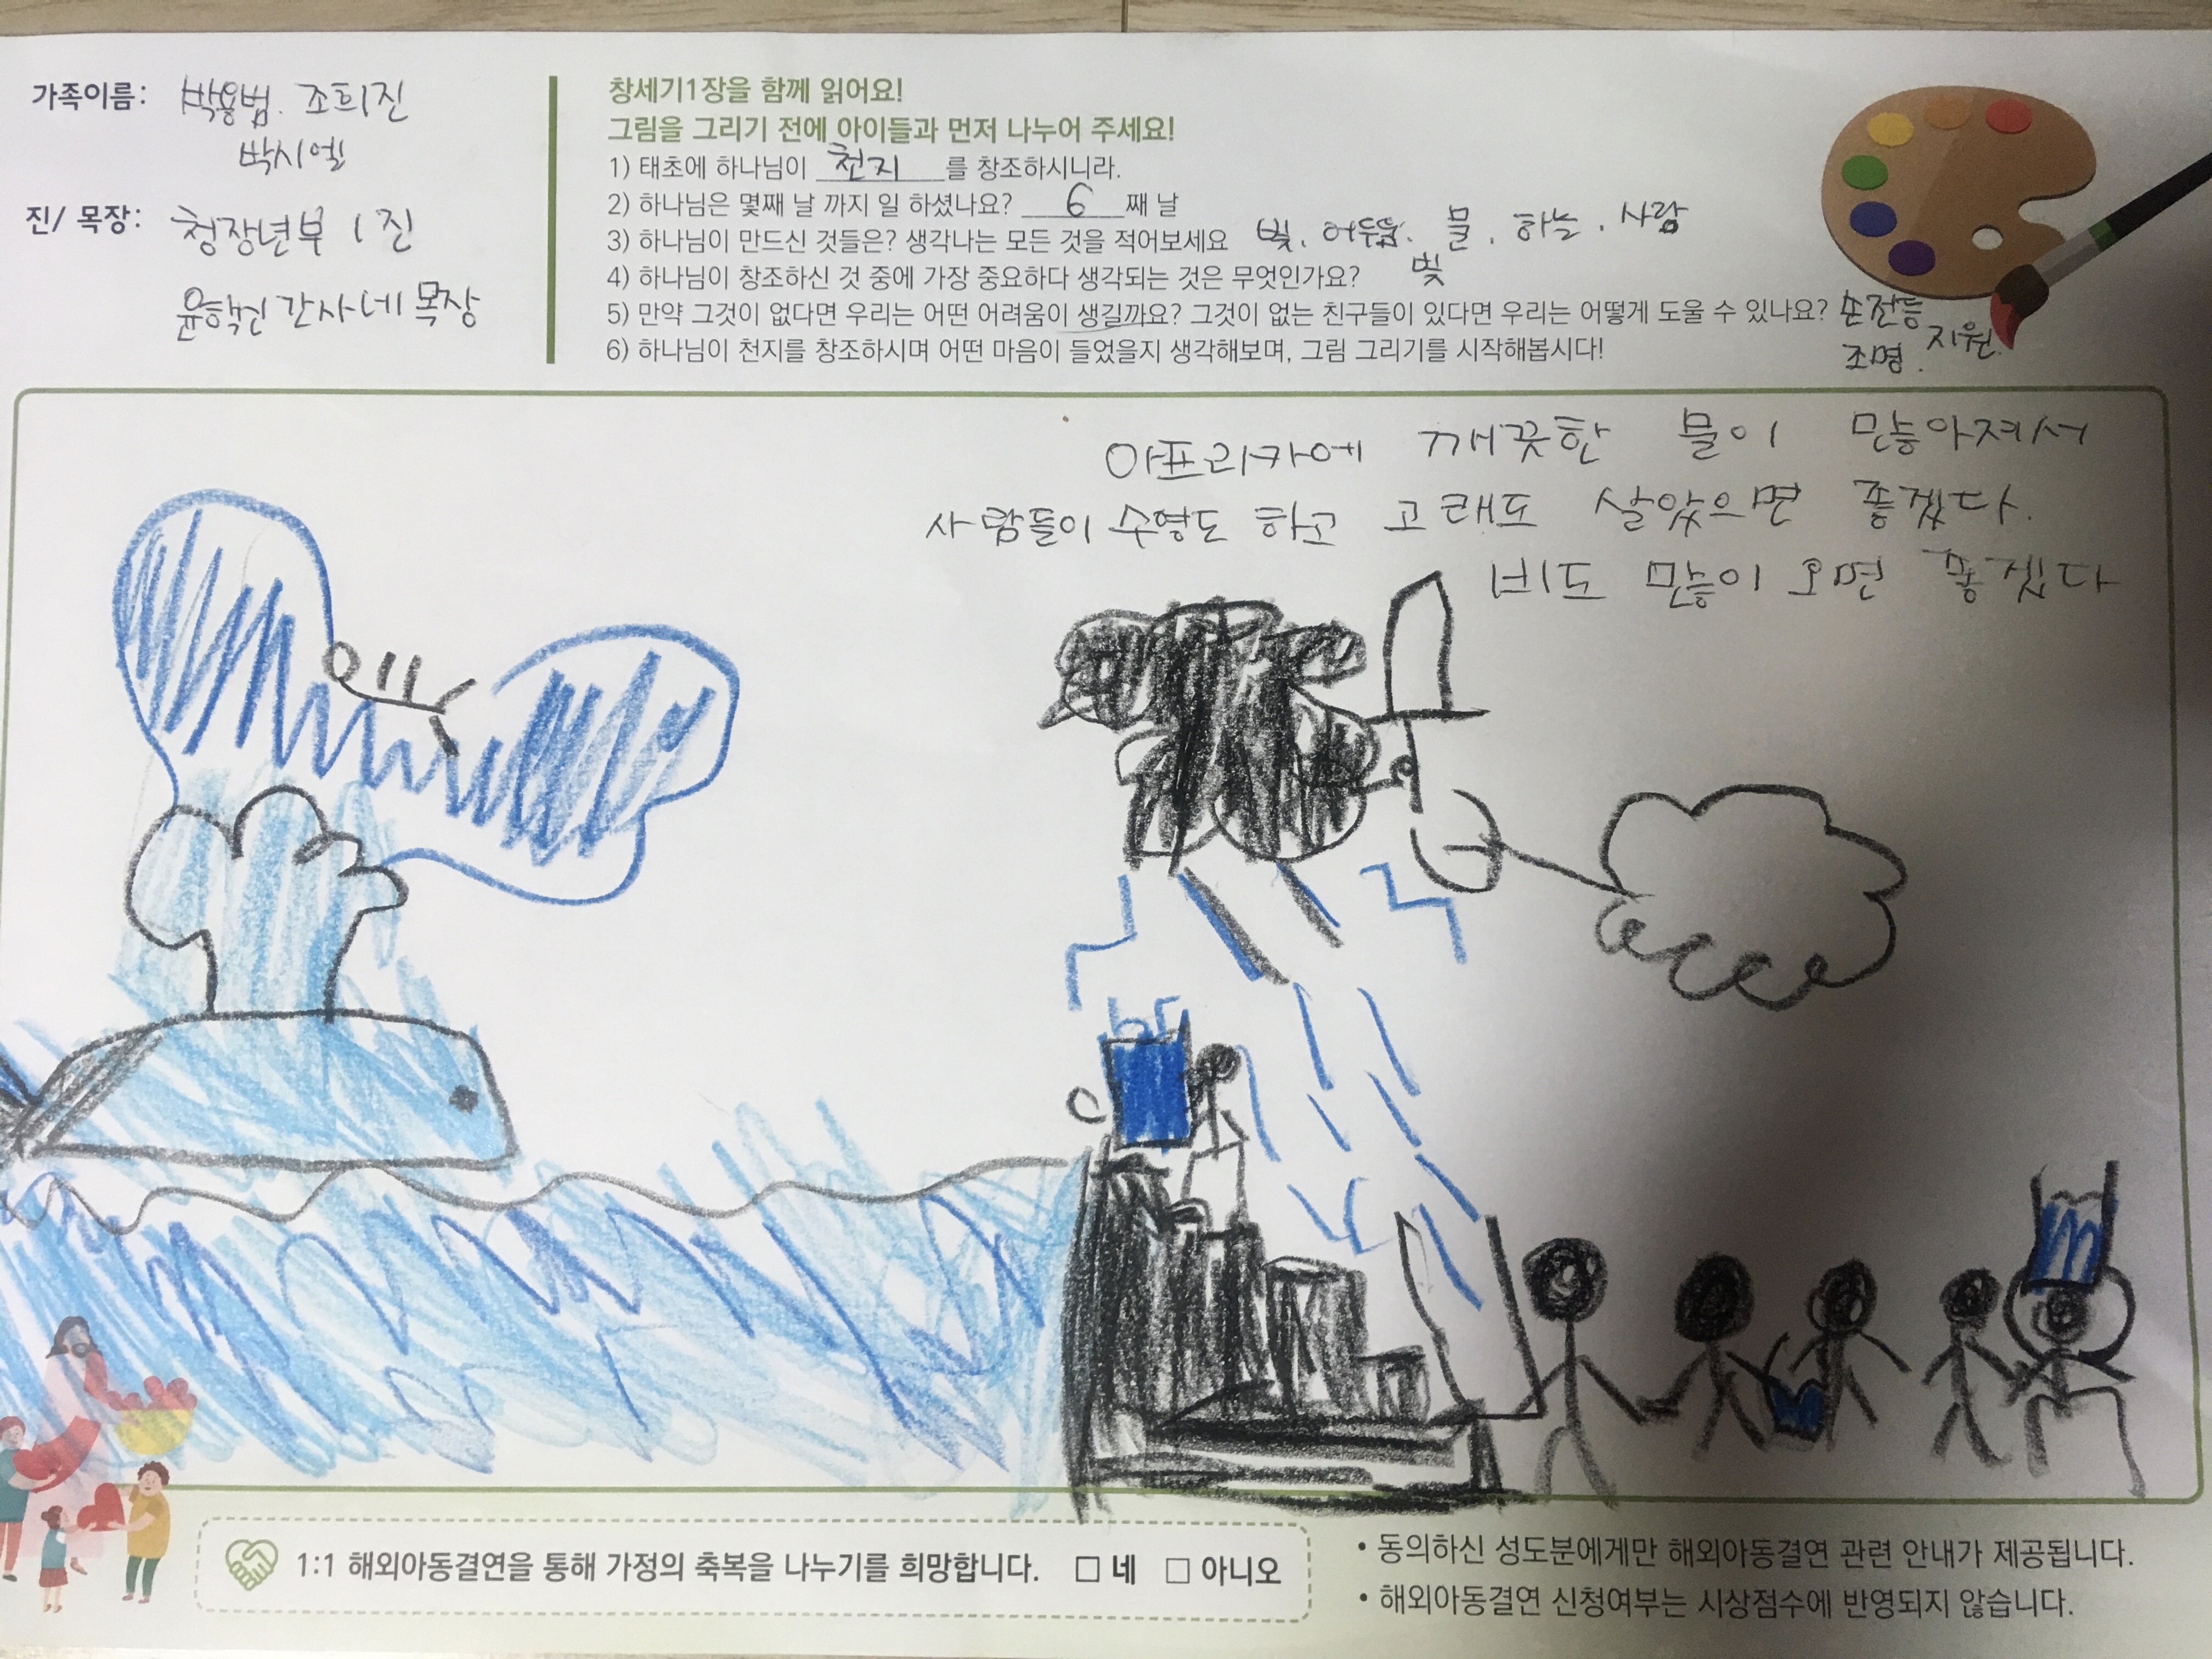 가족이름: 박용범. 조희진
박시엘
진/ 목장: 청장년부 1진
윤혁진 간사네 목장
창세기1장을 함께 읽어요!
그림을 그리기 전에 아이들과 먼저 나누어 주세요!
1) 태초에 하나님이 천지를 창조하시니라.
2) 하나님은 몇째 날 까지 일 하셨나요? 6째 날
3) 하나님이 만드신 것들은? 생각나는 모든 것을 적어보세요 빛. 어두움. 물. 하늘. 사람
4) 하나님이 창조하신 것 중에 가장 중요하다 생각되는 것은 무엇인가요? 빛
5) 만약 그것이 없다면 우리는 어떤 어려움이 생길까요? 그것이 없는 친구들이 있다면 우리는 어떻게 도울 수 있나요? 손전등
조명. 지원.
6) 하나님이 천지를 창조하시며 어떤 마음이 들었을지 생각해보며, 그림 그리기를 시작해봅시다!
아프리카에 깨끗한 물이 많아져서
사람들이 수영도 하고 고래도 살았으면 좋겠다.
비도 많이 오면 좋겠다
1:1 해외아동결연을 통해 가정의 축복을 나누기를 희망합니다. □ 네 □ 아니오
• 동의하신 성도분에게만 해외아동결연 관련 안내가 제공됩니다.
• 해외아동결연 신청여부는 시상점수에 반영되지 않습니다.